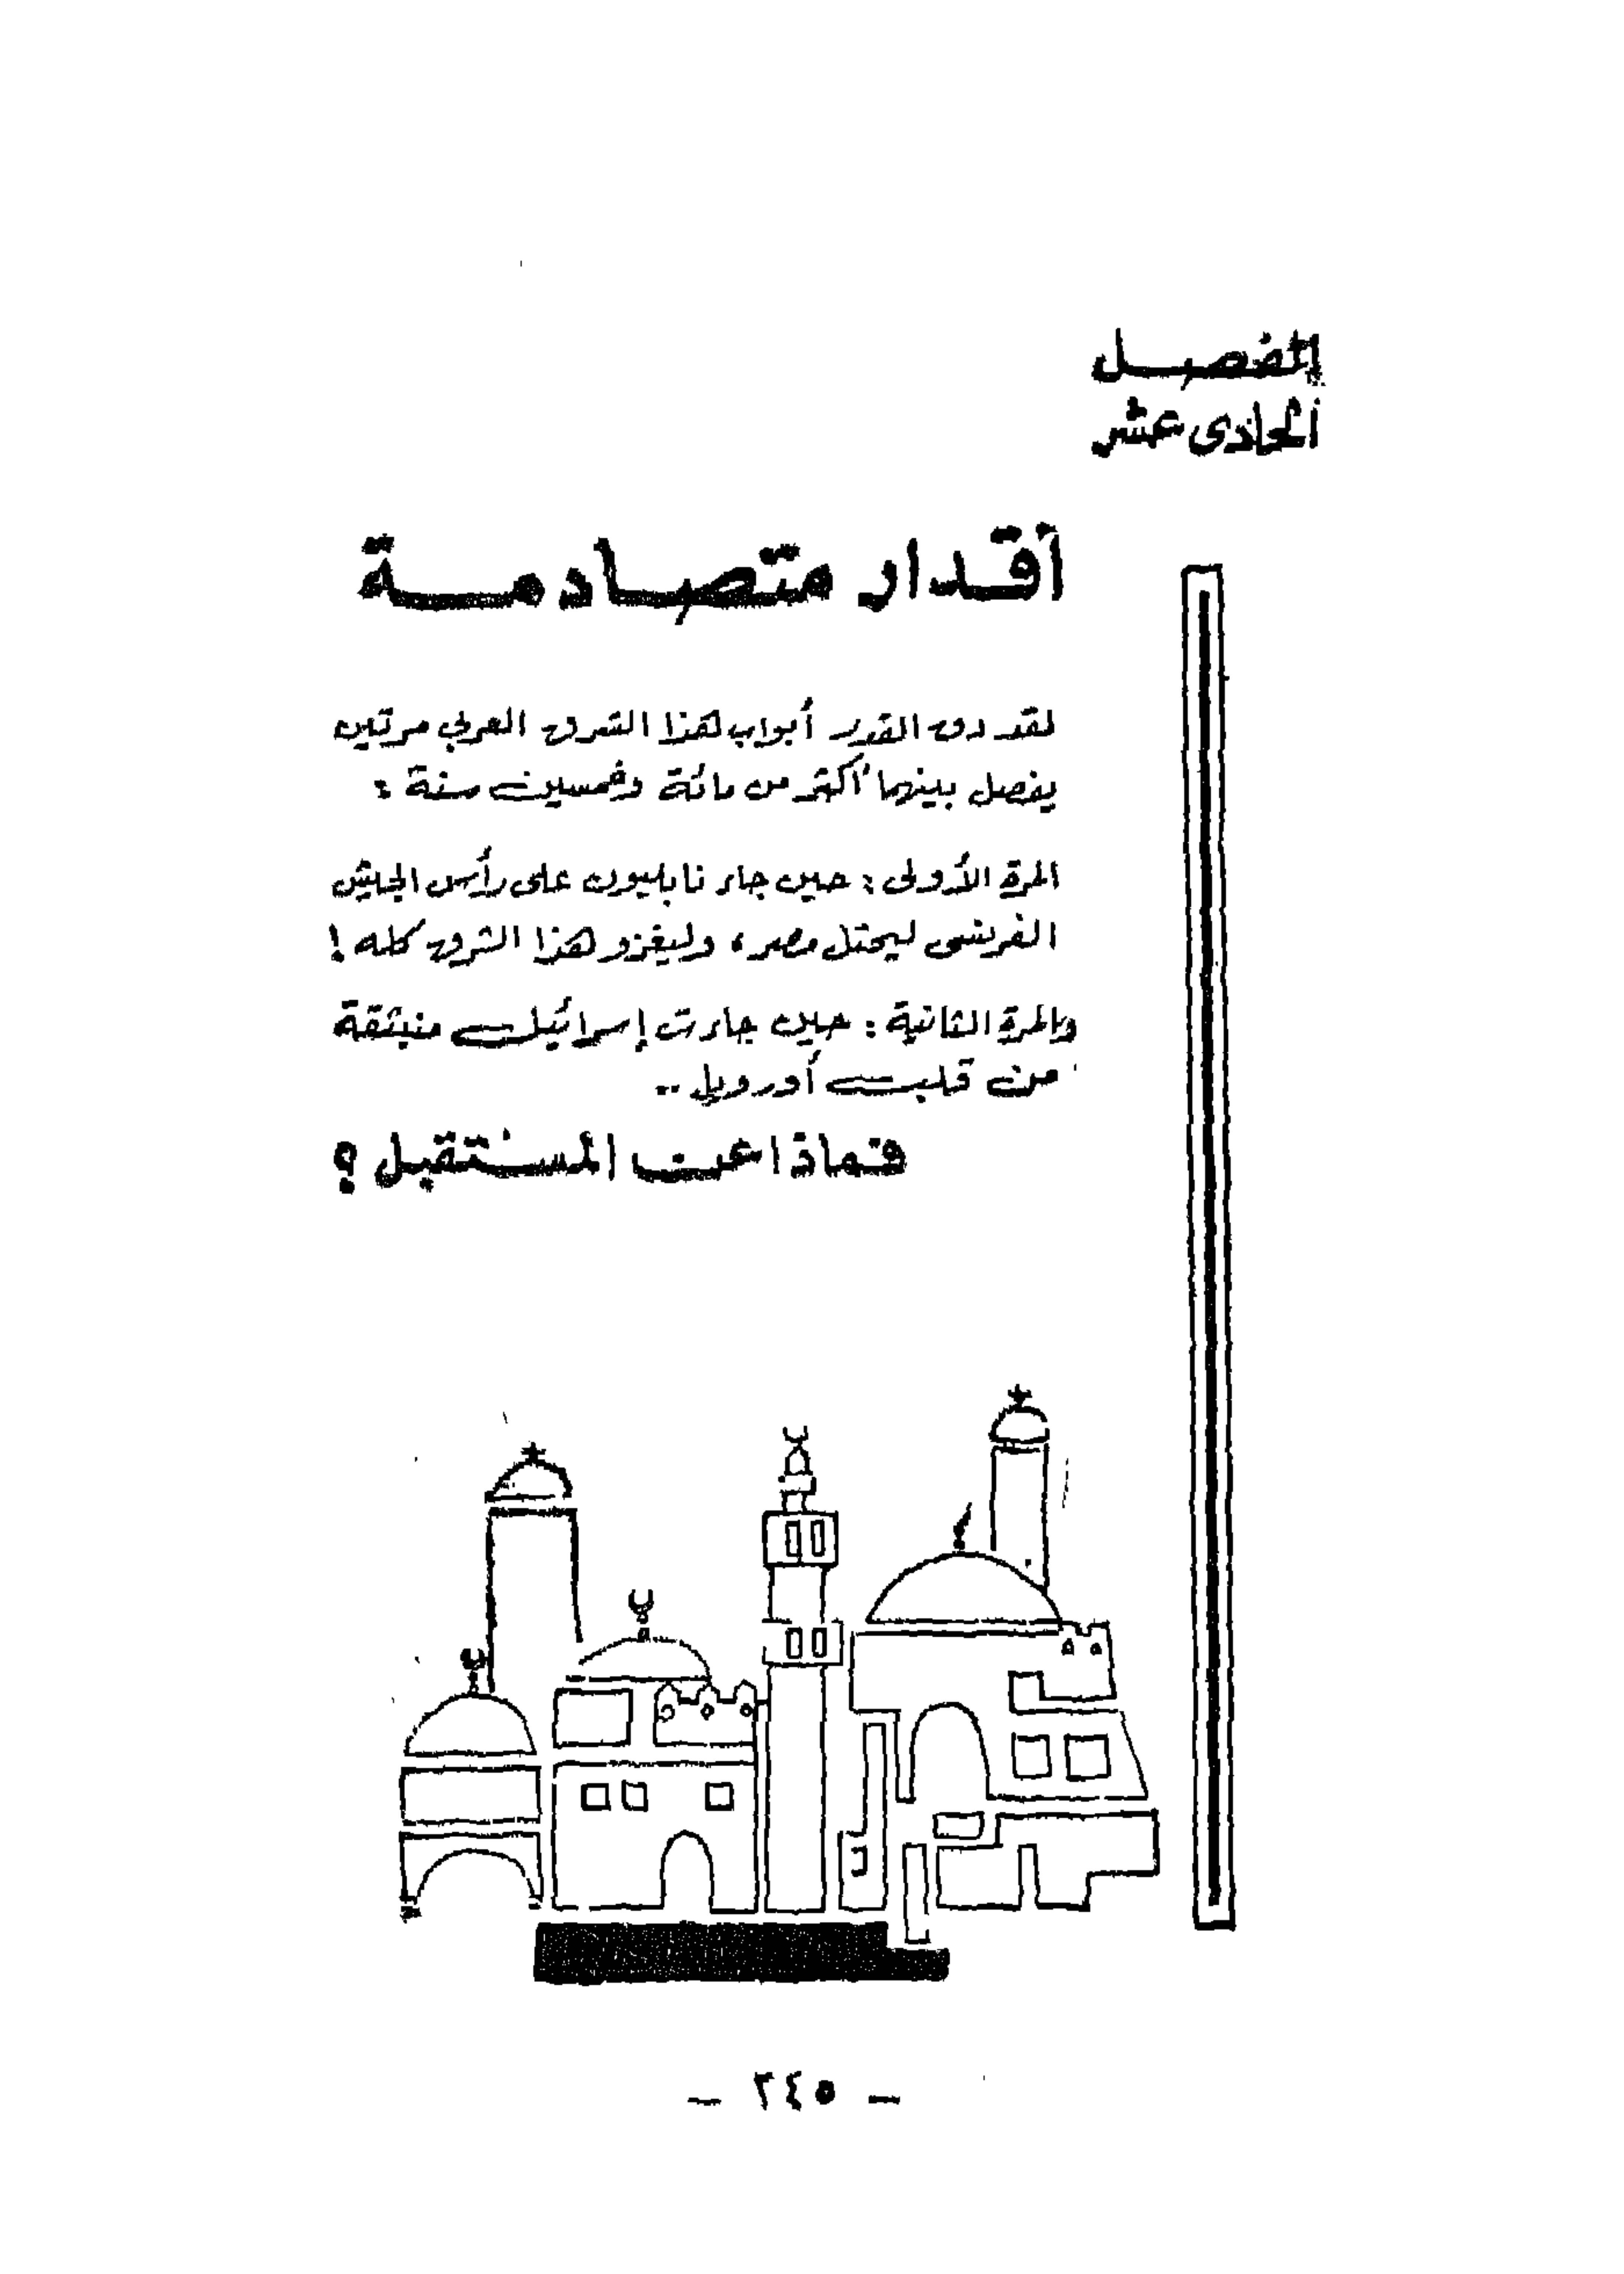 الفصل
الحادى عشر
أقدار متصادمة
لقد دق القدر أبواب هذا الشرق العربي مرتين
يفصل بينهما أكثر من مائة وخمسين سنة :
المرة الأولى : حين جاء نابليون على رأس الجيش
الفرنسى ليحتل مصر، وليغزو هذا الشرق كله !
والمرة الثانية : حين جاءت إسرائيل منبثقة
من قلب أوروبا ..
فماذا عن المستقبل ؟
— ٢٤٥ —